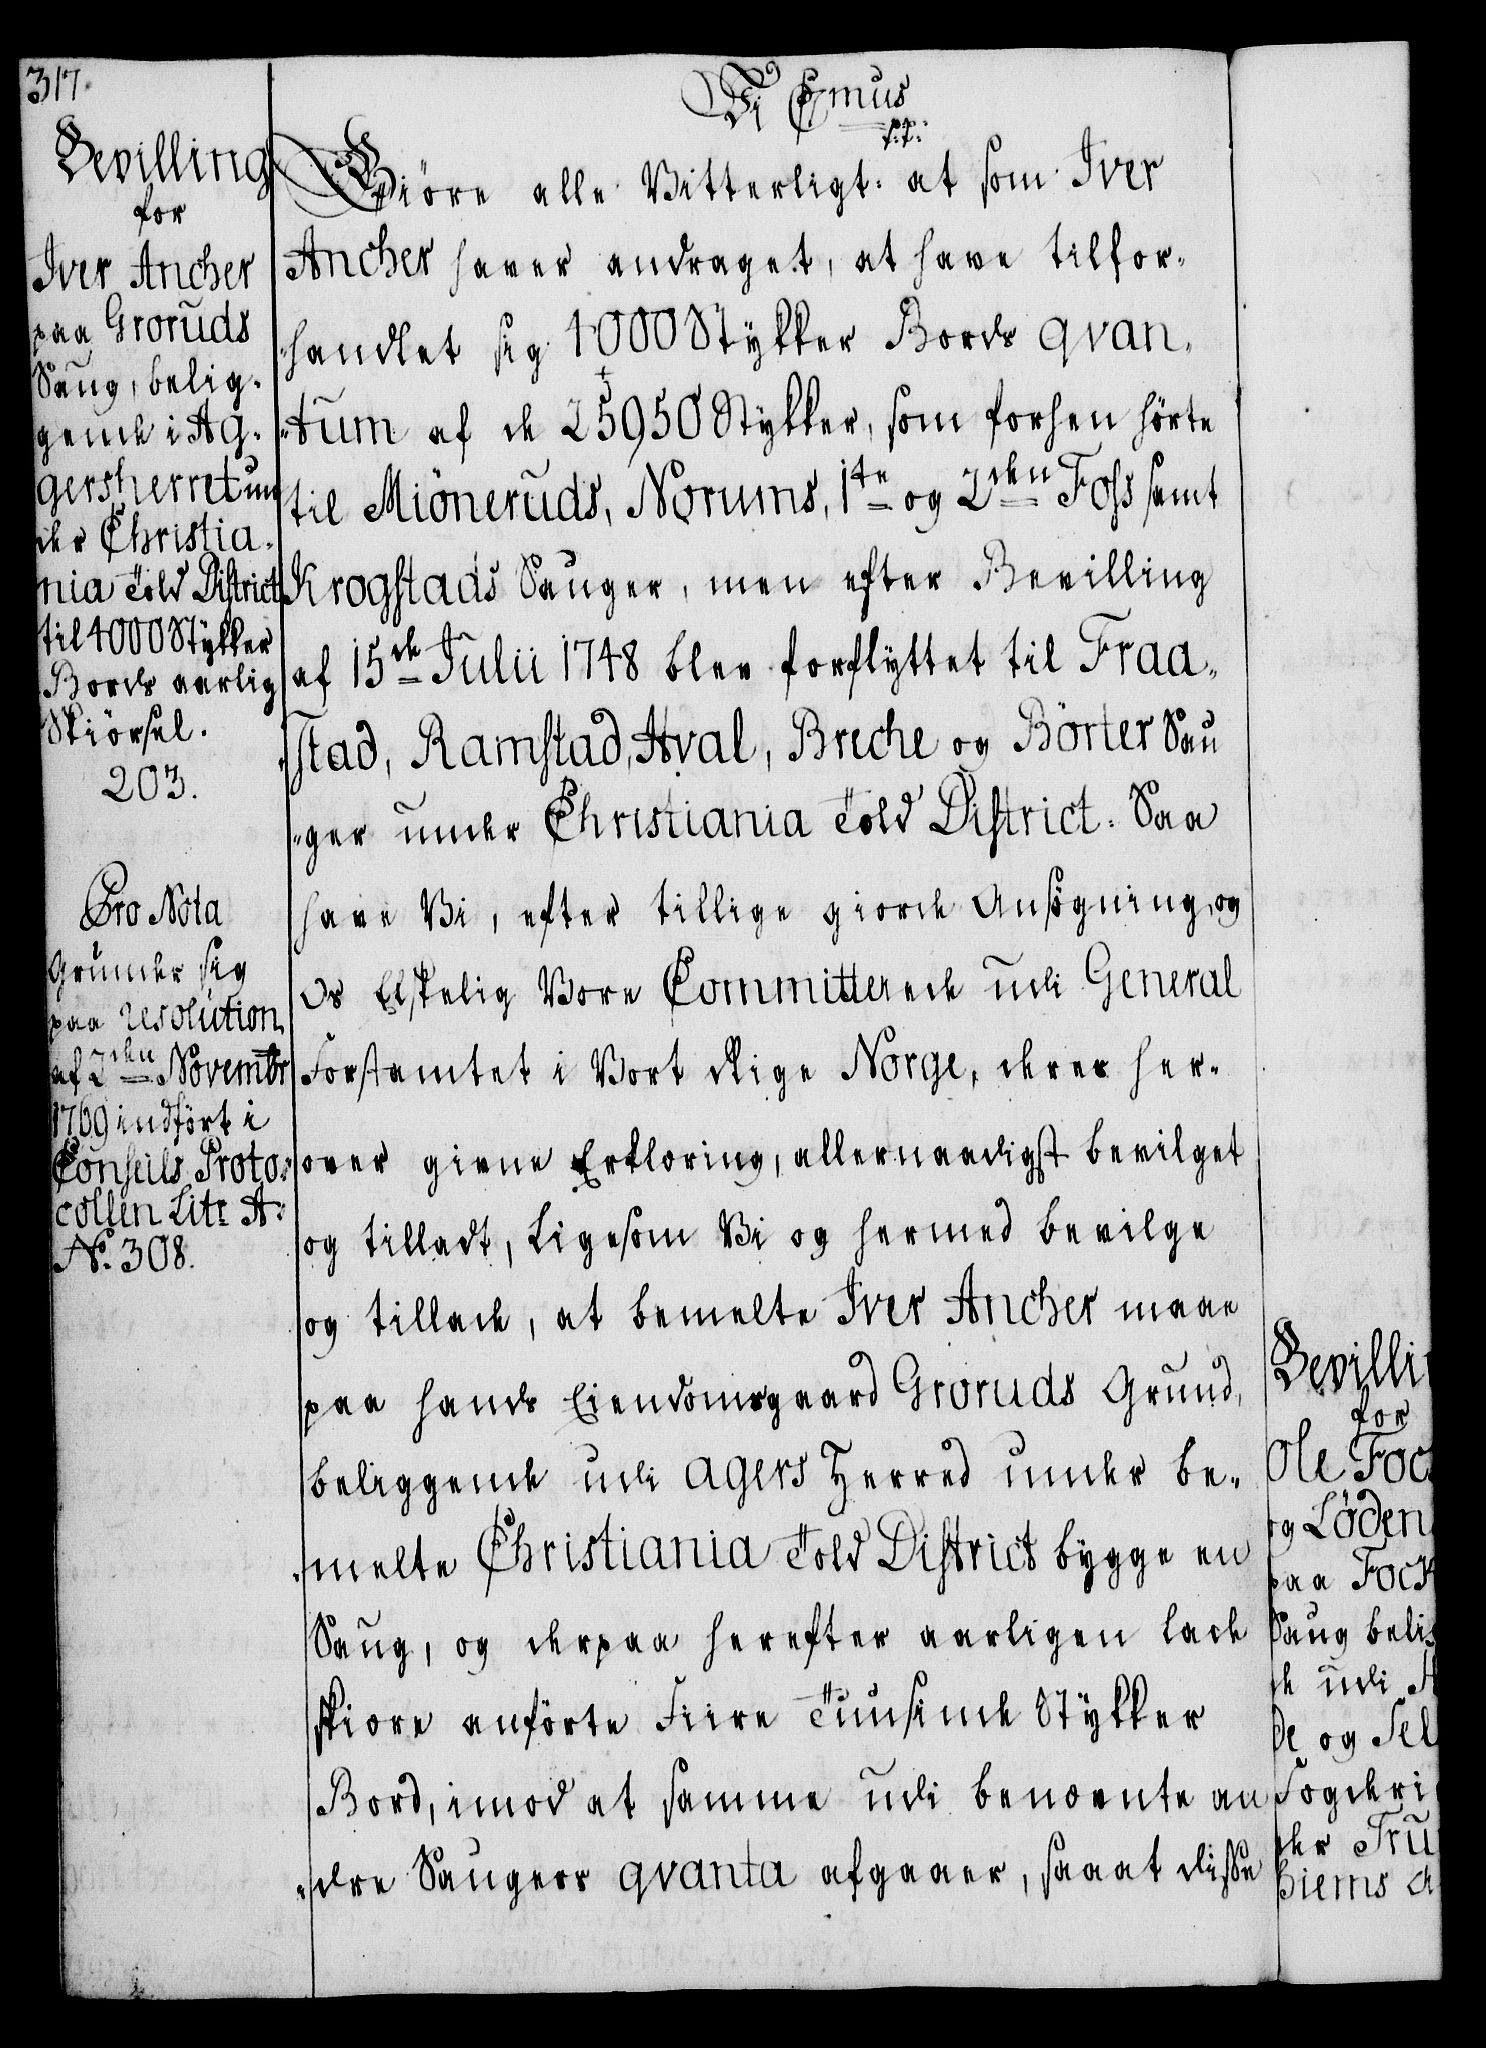 317.
Bevilling
for
Iver Ancher
paa Groruds
Saug, belig-
gende i Ag-
gersherret un
der Christia-
nia Told District
til 4000 Stykker
Bords aarlig
Skiörsel.
203.
Pro Nota
Grunder sig
paa resolution
af 2den Novembr
1769 indfört i
Conseils Proto-
collen Litr A.
No. 308.
Vi C 7mus
s:t:
Giöre alle Vitterligt: at som Iver
Ancher haver andraget, at have tilfor-
handlet sig 4000 Stykker Bords qvan-
tum af de 25950 Stykker, som forhen hörte
til Miöneruds, Norums, 1te og 2den Foss samt
Krogstads Sauger, men efter Bevilling
af 15de Julii 1748 blev forflyttet til Fraa-
stad, Ramstad, Hval, Breche og Börter Sau
ger under Christiania Told District: Saa
have Vi, efter tillige giorde Ansögning, og
Os Elskelig Vore Committerede udi General
Forstamtet i Vort Rige Norge, derer her-
over givne Erklæring, allernaadigst bevilget
og tilladt, Ligesom Vi og hermed bevilge
og tillade, at bemelte Iver Ancher maae
paa hands Eiendomsgaard Groruds Grund,
beliggende udi Agers Herred under be-
melte Christiania Told District bygge en
Saug, og derpaa herefter aarligen lade
skiore anförte Fiire Tuusinde Stykker
Bord, imod at samme udi benœvnte an
dre Saugers qvanta afgaaer, saaat disse
Bevilli
for
Ole Foc
og Löden
paa Fock
Saug beli
de udi
de og Sel
Fogderi
der Tru
hiems A